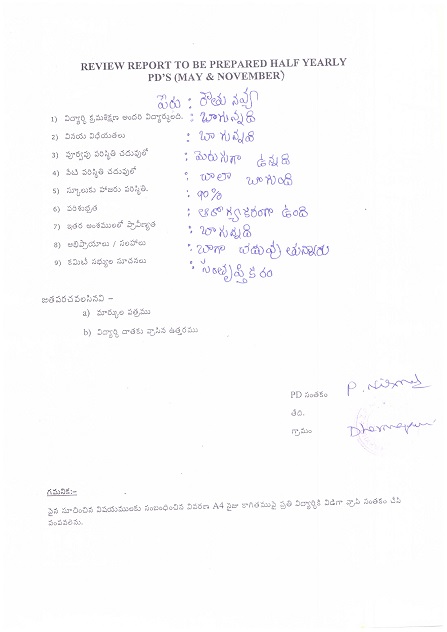 REVIEW REPORT TO BE PREPARED HALF YEARLY
PD'S (MAY & NOVEMBER)
పేరు : రౌతు నవ్య
1) విద్యార్థి క్రమశిక్షణ అందరి విద్యార్థులది. : బాగున్నది
2) వినయ విధేయతలు : బాగున్నది
3) పూర్వపు పరిస్థితి చదువులో : మెరుగుగా ఉన్నది
4) నేటి పరిస్థితి చదువులో : చాలా బాగుంది
5) స్కూలుకు హాజరు పరిస్థితి. : 90%
6) పరిశుభ్రత : ఆరోగ్యకరంగా ఉంది
7) ఇతర అంశములలో ప్రావీణ్యత : బాగున్నది
8) అభిప్రాయాలు / సలహాలు : బాగా చదువుతున్నారు
9) కమిటీ సభ్యుల సూచనలు : సంతృప్తికరం
జతపరచవలసినవి –
a) మార్కుల పత్రము
b) విద్యార్థి దాతకు వ్రాసిన ఉత్తరము
PD సంతకం P.
తేది.
గ్రామం Dharmapuri
గమనిక:-
పైన సూచించిన విషయములకు సంబంధించిన వివరణ A4 సైజు కాగితముపై ప్రతి విద్యార్థికి విడిగా వ్రాసి సంతకం చేసి
పంపవలెను.